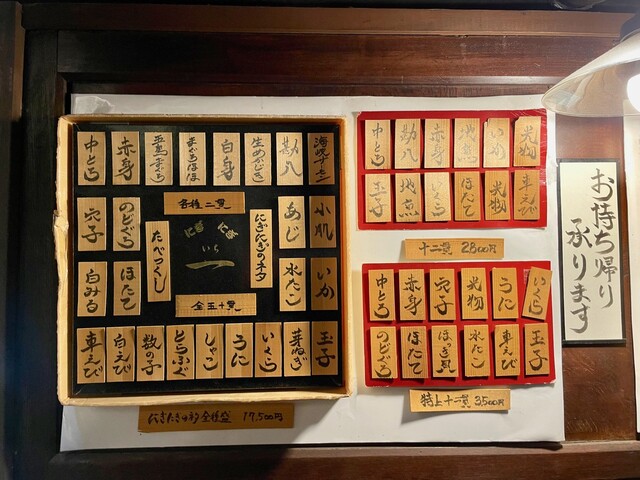 中とろ
赤身
まぐろほほ
白身
生めかじき
勘八
海峡サーモン
穴子
のどぐろ
あじ
小肌
白みる
ほたて
水たこ
いか
車えび
白えび
数の子
とらふぐ
しゃこ
うに
いくら
芽ねぎ
玉子
各種二貫
にぎにぎ
いち
一
たべつくし
にぎにぎのネタ
全五十貫
17,500円
中とろ
勘八
赤身
いか
光物
玉子
いくら
ほたて
光物
車えび
十二貫 2,800円
中とろ
赤身
穴子
光物
うに
いくら
のどぐろ
ほたて
ほっき貝
水たこ
車えび
玉子
特上十二貫 3,500円
お持ち帰り
承ります